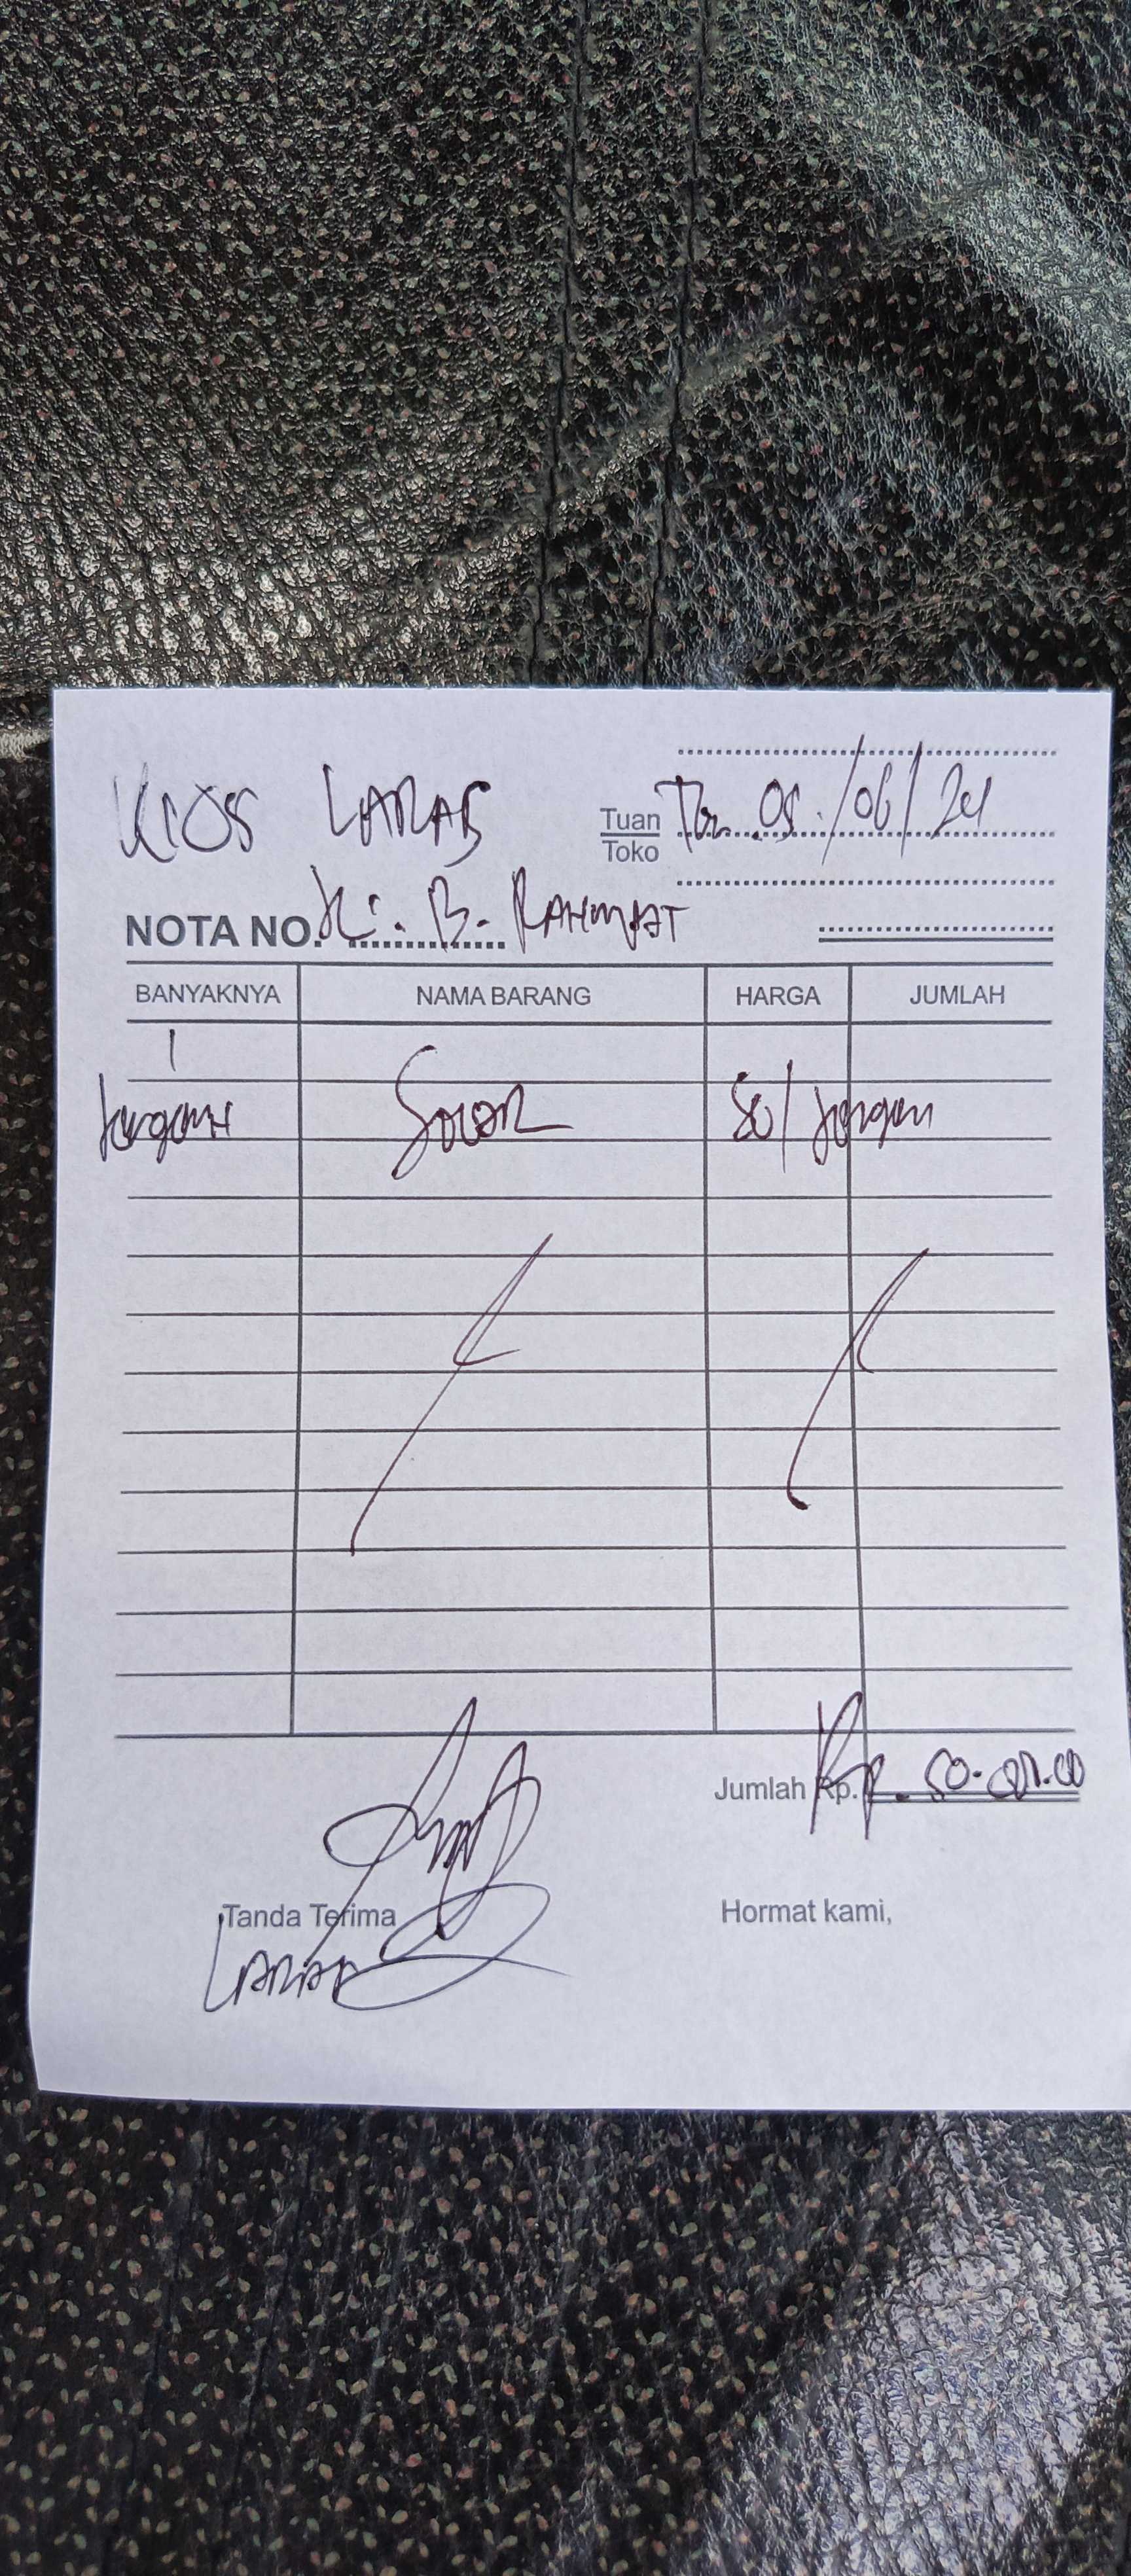 KIOS LARAS
Tuan 05/06/24
Toko
NOTA NO. B. RAHMAT
BANYAKNYA NAMA BARANG HARGA JUMLAH
1
Jergen Solar 50/Jergen
Jumlah Rp. Rp. 50.000.00
Tanda Terima Hormat kami,
LARAS